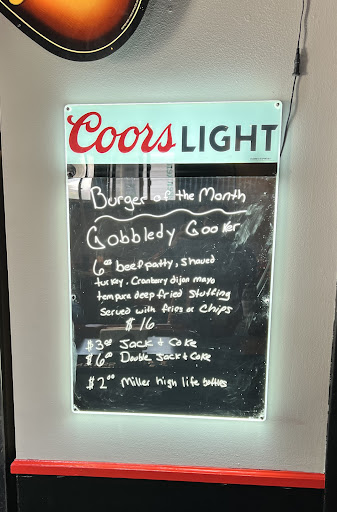 Coors LIGHT
Burger of the Month
Gobbledy Gooker
6oz beef patty, shaved
turkey, Cranberry dijon mayo
tempura deep fried stuffing
Served with fries or chips
$16
$3.00 Jack + Coke
$6.00 Double Jack + Coke
$2.00 Miller high life bottles